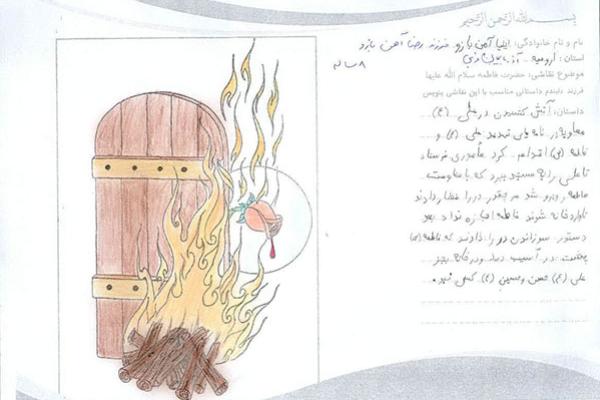 بسم الله الرحمن الرحیم
نام و نام خانوادگی: ایلیا آهن بازو فرزند رضا آهن بازو
استان: ارومیه 8 ساله
موضوع نقاشی: حضرت فاطمه سلام الله علیها
فرزند دلبندم داستانی مناسب با این نقاشی بنویس
داستان: آتش کشیدن در علی (ع)
معاویه در نامه یی تهدید علی (ع) و
فاطمه (س) اقدام کرد مأموری فرستاد
تا علی را به مسجد ببرد که با مقاومت
فاطمه روبرو شد هر چقدر در را فشار دادند
تا وارد خانه شوند فاطمه اجازه نداد بعد
دستور سوزاندن در را دادند که فاطمه (س)
پشت در آسیب دید و در خانه بجز
علی (ع) حسن و حسین (ع) کسی نبود